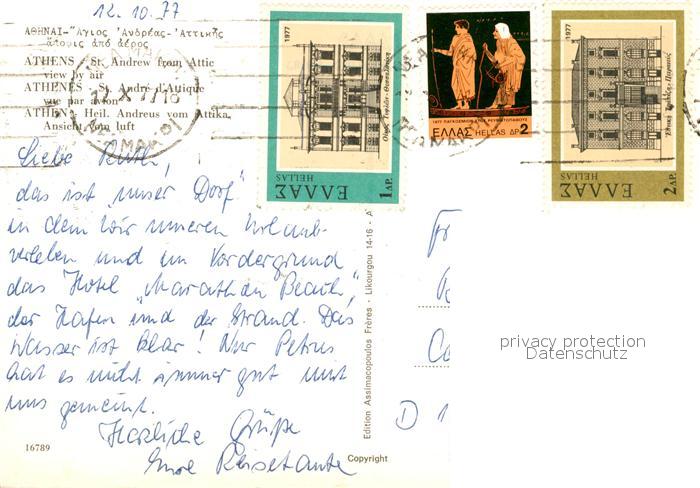 12.10.77
ΑΘΗΝΑΙ-Ἅγιος Ἀνδρέας-Ἀττικῆς
ἄποψις ἀπό ἀέρος
ATHENS St. Andrew from Attic
view by air
ATHENES St. André d'Atique
vue par avion
ATHEN Heil. Andreus vom Attika,
Ansicht vom luft
Liebe Ruth,
das ist "unser Dorf"
in dem wir unseren Urlaub
verleben und im Vordergrund
das Hotel "Marathon Beach",
der Hafen und der Strand. Das
Wasser ist klar! Nur Petrus
hat es nicht immer gut mit
uns gemeint.
Herzliche Grüße
Eure Reisetante
16789
Copyright
Edition Assimacopoulos Frères - Likourgou 14-16 - A
1977
ΕΛΛΑΣ
HELLAS
1 ΔΡ.
ΕΛΛΑΣ HELLAS ΔΡ 2
1977
ΕΛΛΑΣ
HELLAS
2 ΔΡ.
Fr
Co
D 1
privacy protection
Datenschutz